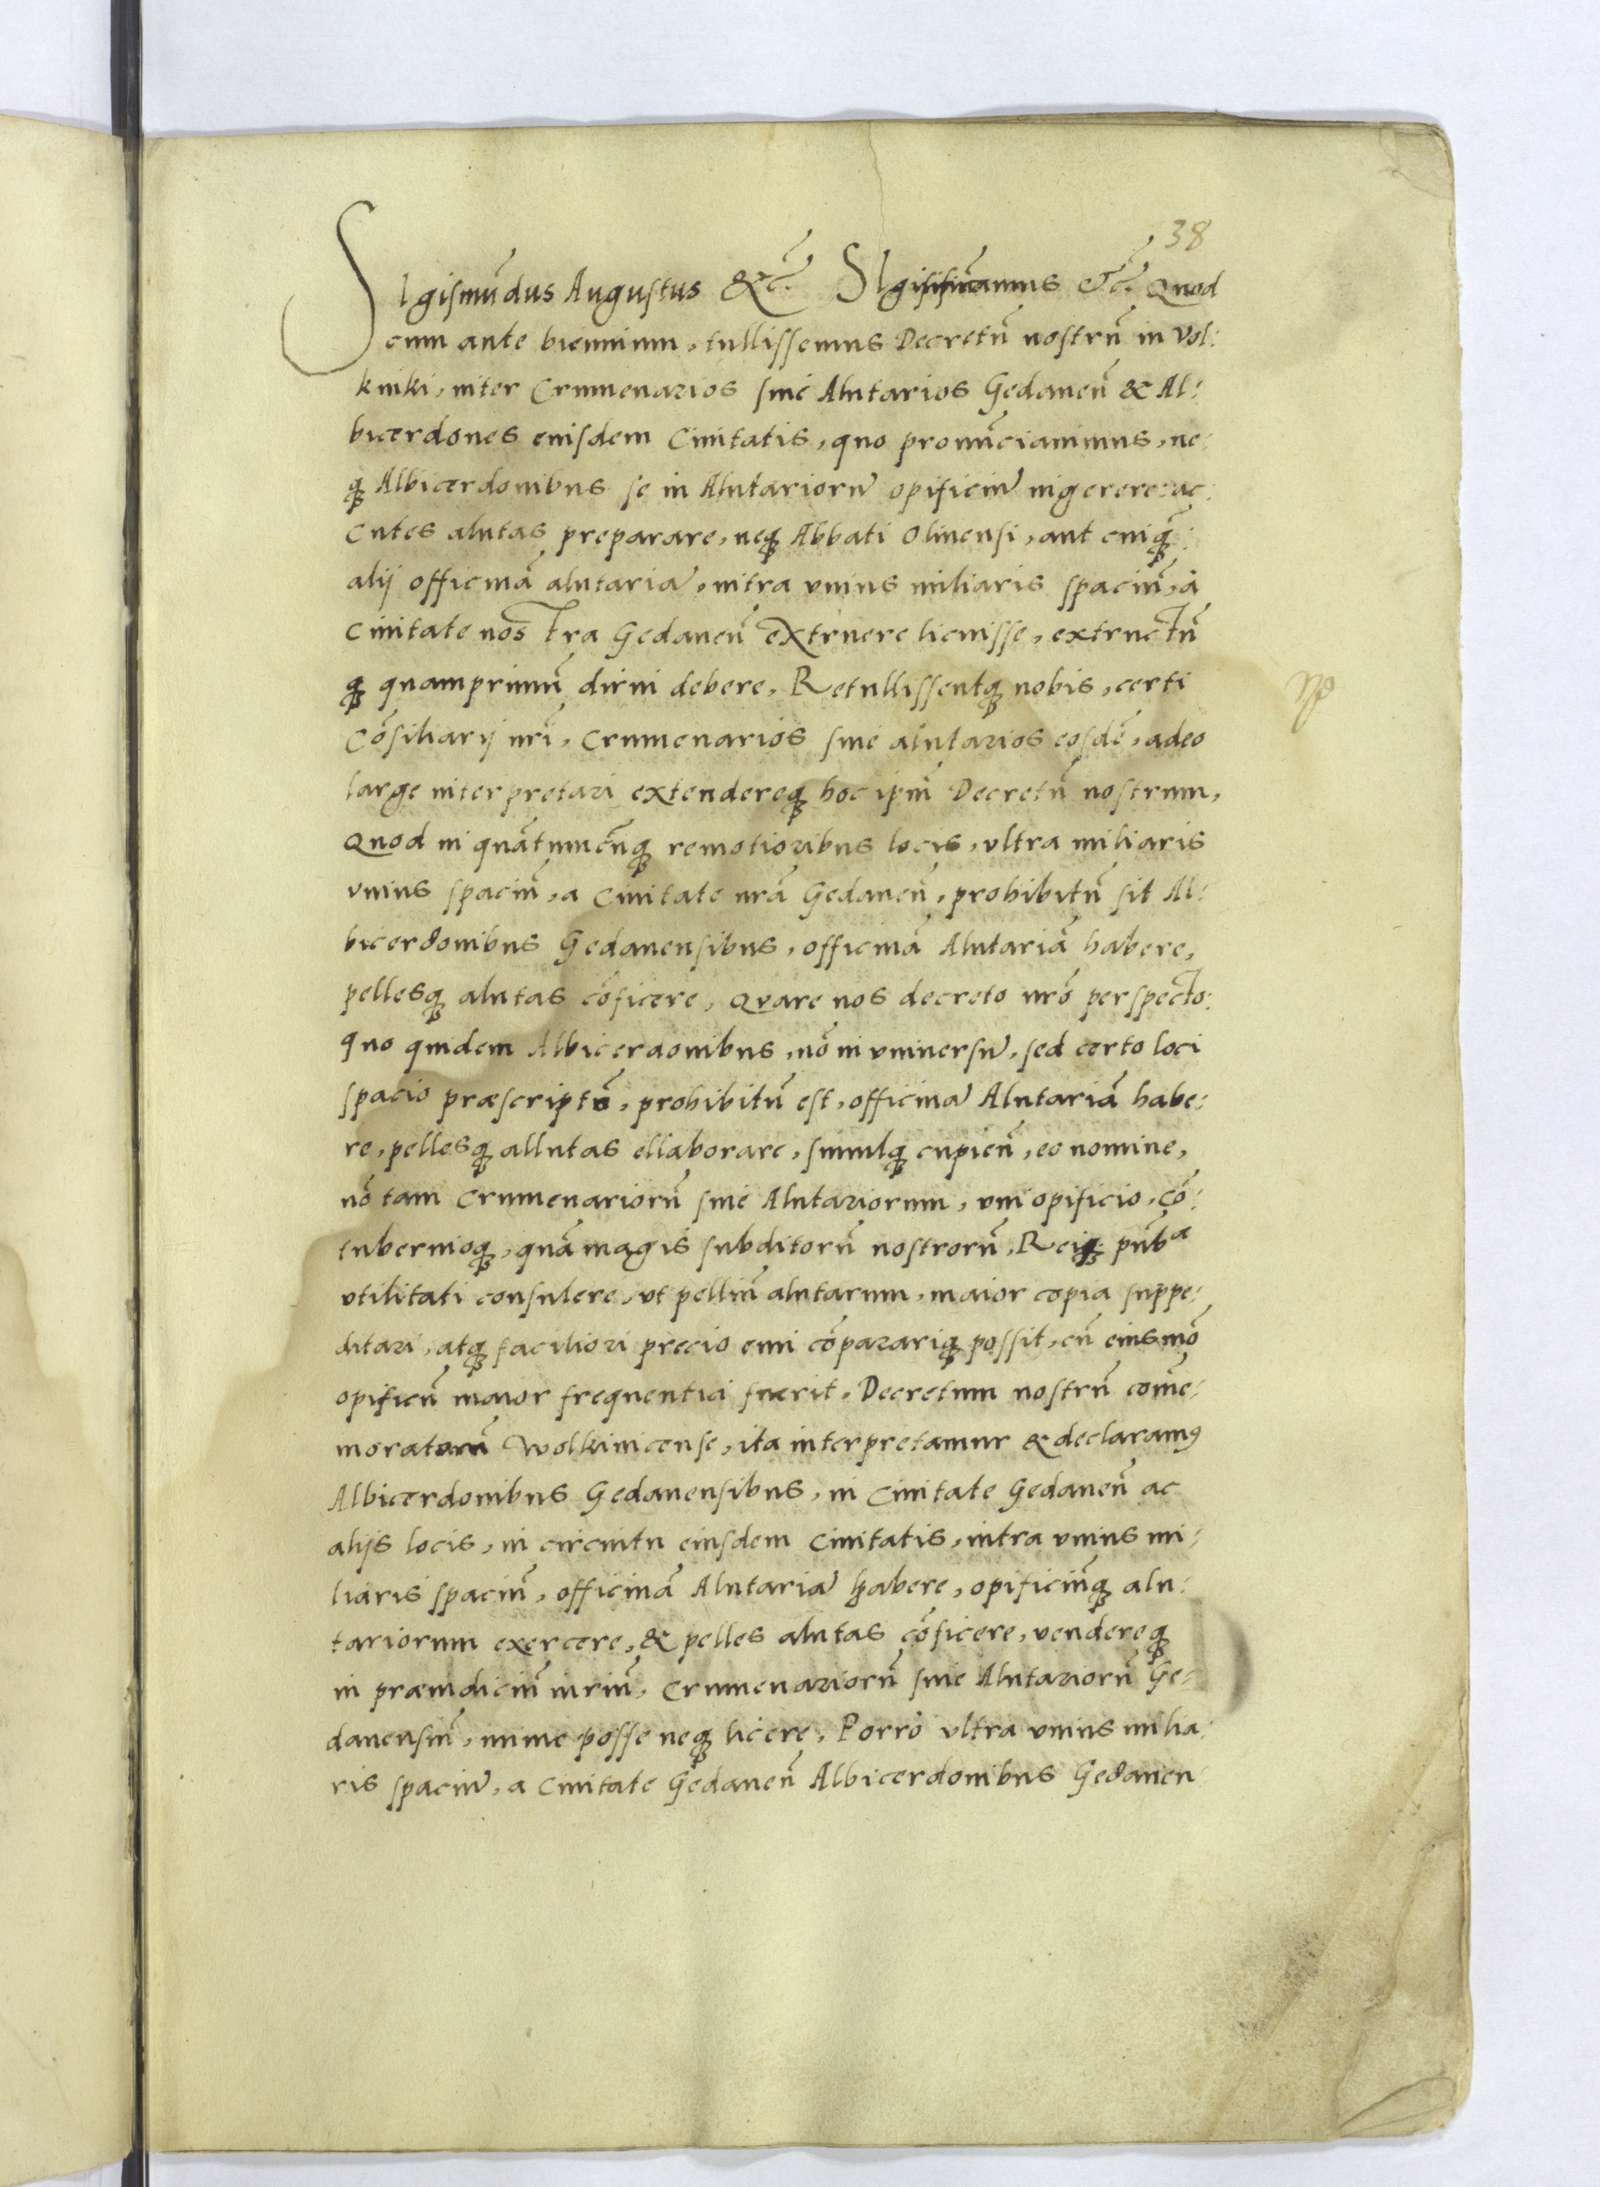 38
SIgismūdus Augustus &c̃. SIgisificamus &c̃. Quod
cum ante biennium, tullissemus Decretũ nostrũ in Vol:
kiniki, inter Crumenarios siue Alutarios Gedaneñ & Al:
bicerdones eiusdem Ciuitatis, quo pronũciauimus, ne:
q̃ Albicerdonibus se in Alutariorũ opificiũ ingerere: ac:
Cutes alutas preparare, neq̃ Abbati Oliuensi, aut cuiq̃:
alij officinã alutariã, intra vnius miliaris spaciũ, à
Ciuitate nostra Gedaneñ extruere licuisse, extructũ
q̃ quamprimũ dirui debere, Retullissentq̃ nobis, certi
Cõsiliarij nr̃i, Crumenarios siue alutarios eosdẽ, adeo
large interpretari extendereq̃ hoc ipm̃ Decretũ nostrum,
Quod in quãtumcũq̃ remotioribus locis, vltra miliaris
vnius spaciũ, a Ciuitate nr̃a Gedaneñ, prohibitũ sit Al:
bicerdonibus Gedanensibus, officinã Alutariã habere,
pellesq̃ alutas cõficere, Quare nos decreto nr̃o perspecto:
quo quidem Albicerdonibus, nõ in vniuersũ, sed certo loci
spacio præscripto, prohibitũ est, officinã Alutariã habe:
re, pellesq̃ allutas ellaborare, simulq̃ cupieñ, eo nomine,
nõ tam Crumenariorũ siue Alutariorum, vni opificio, cõ:
tubernioq̃, quã magis subditorũ nostrorũ, Reiq̃ pub̃ᵃ
vtilitati consulere, vt pelliũ alutarum, maior copia suppe:
ditari, atq̃ faciliori precio emi cõparariq̃ possit, cũ eiusmõ
opificũ maior frequentia fuerit, Decretum nostrũ com̃e:
moratum Wolkinicense, ita interpretamur & declaramus
Albicerdonibus Gedanensibus, in Ciuitate Gedaneñ ac
alijs locis, in circuitu eiusdem Ciuitatis, intra vnius mi:
liaris spaciũ, officinã Alutariã habere, opificiũq̃ alu:
tariorum exercere, & pelles alutas cõficere, vendereq̃
in præiudiciũ iuriũ, Crumenariorũ siue Alutariorũ Ge:
danensiũ, mime posse neq̃ licere, Porrò vltra vnius milia:
ris spaciũ, a Ciuitate Gedaneñ Albicerdonibus Gedanen